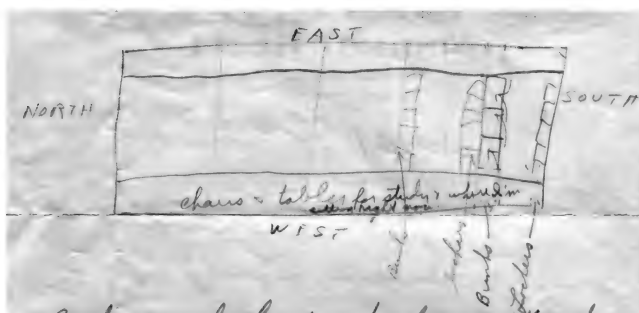 EAST
NORTH
SOUTH
chairs & tables for study & where I'm
right now
WEST
Bunks
Lockers
Bunks
Lockers